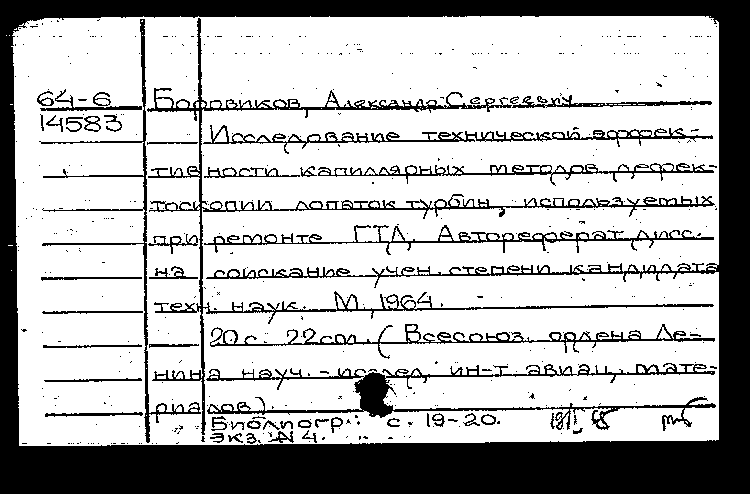 64-6 Боровиков, Александр Сергеевич
14583
Исследование технической эффек-
тивности капиллярных методов дефек-
тоскопии лопаток турбин, используемых
при ремонте ГТД. Автореферат дисс.
на соискание учен. степени кандидата
техн. наук. М., 1964.
20 с. 22 см. (Всесоюз. ордена Ле-
нина науч.-исслед. ин-т авиац. мате-
риалов).
Библиогр.: с. 19-20.
экз. N 4.